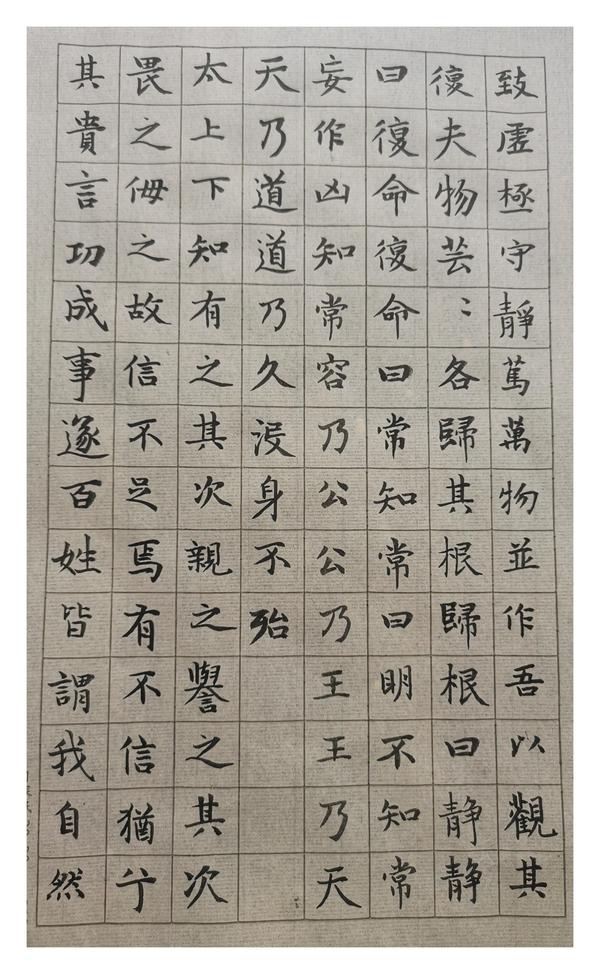 致虛極守靜萬萬物並作吾以觀其
復夫物芸〻各歸其根歸根曰静静
曰復命復命曰常知常曰明不知常
妄作凶知常容乃公公乃王王乃天
天乃道道乃久没身不殆
太上下知有之其次親之譽之其次
畏之侮之故信不足焉有不信猶兮
其貴言功成事遂百姓皆謂我自然